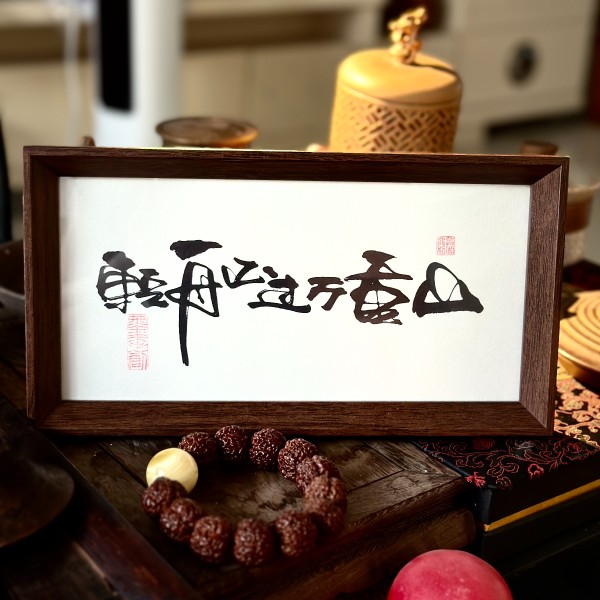 輕舟已过万重山